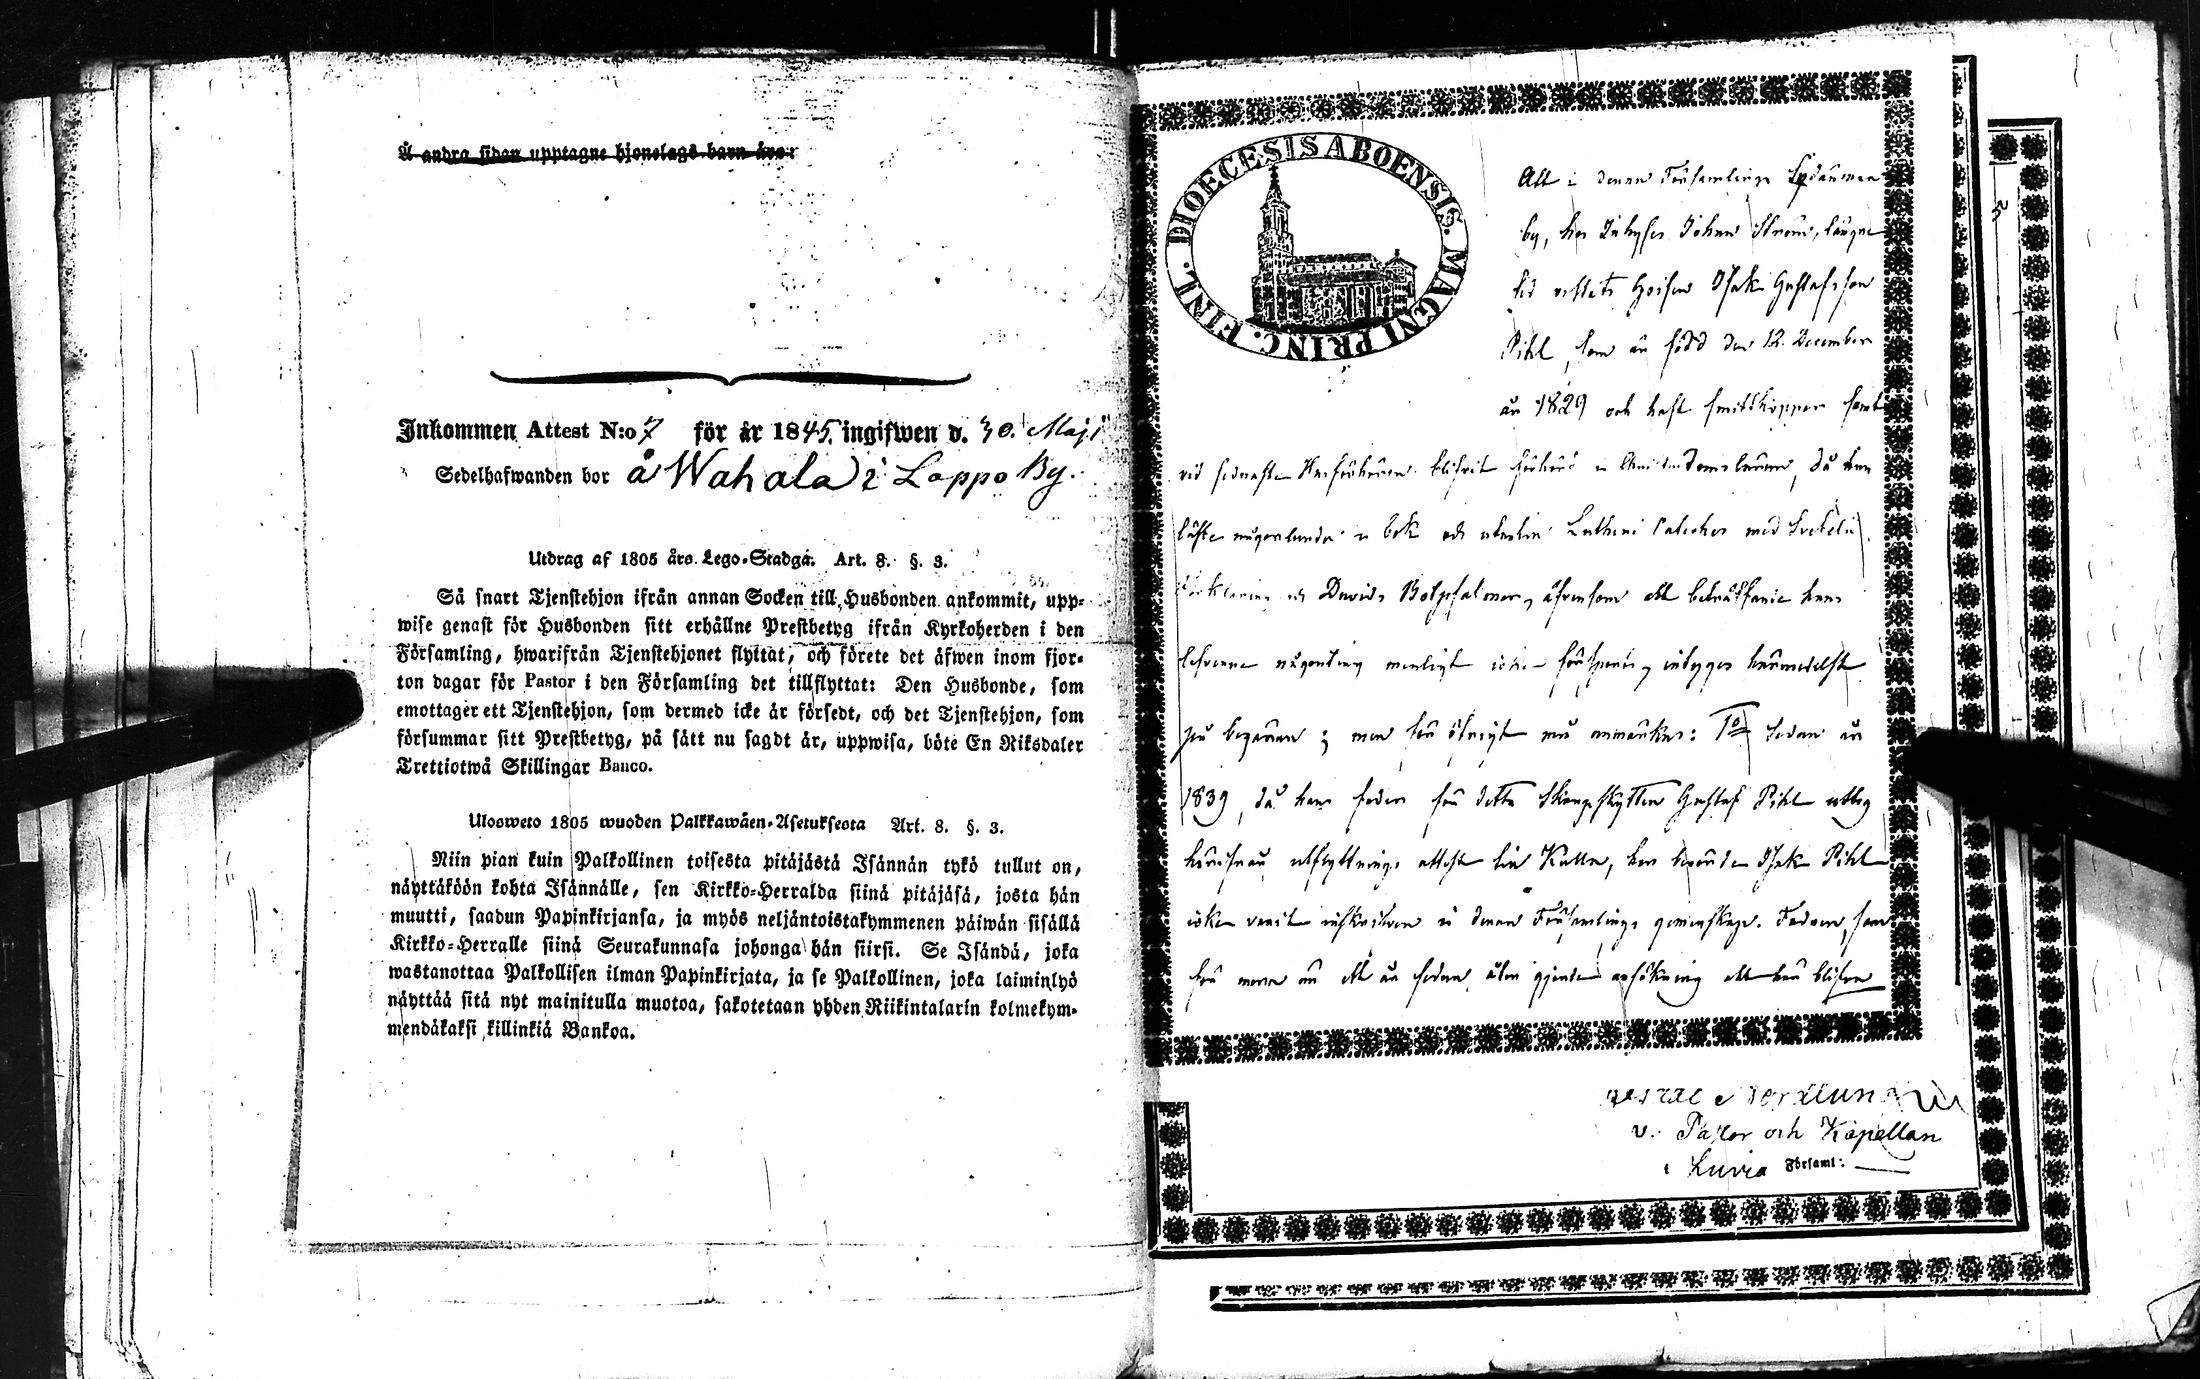 Å andra sidan upptagne hjonelags barn äro:
Inkommen Attest N:o 7 för år 1845. ingifwen d. 30. Maji
Sedelhafwanden bor å Wahala i Lappo By.
Utdrag af 1805 års Lego-Stadga: Art. 8. §. 3.
Så snart Tjenstehjon ifrån annan Socken till Husbonden ankommit, upp-
wise genast för Husbonden sitt erhållne Prestbetyg ifrån Kyrkoherden i den
Församling, hwarifrån Tjenstehjonet flyttat, och förete det äfwen inom fjor-
ton dagar för Pastor i den Församling det tillflyttat: Den Husbonde, som
emottager ett Tjenstehjon, som dermed icke är försedt, och det Tjenstehjon, som
försummar sitt Prestbetyg, på sätt nu sagdt är, uppwisa, böte En Riksdaler
Trettiotwå Skillingar Banco.
Ulosweto 1805 wuoden Palkkawäen-Asetuksesta Art. 8. §. 3.
Niin pian kuin Palkollinen toisesta pitäjästä Isännän tykö tullut on,
näyttäköön kohta Isännälle, sen Kirkko-Herralda siinä pitäjäsä, josta hän
muutti, saadun Papinkirjansa, ja myös neljäntoistakymmenen päiwän sisällä
Kirkko-Herralle siinä Seurakunnasa johonga hän siirsi. Se Isändä, joka
wastanottaa Palkollisen ilman Papinkirjata, ja se Palkollinen, joka laiminlyö
näyttää sitä nyt mainitulla muotoa, sakotetaan yhden Riikintalarin kolmekym-
mendäkaksi killinkiä Bankoa.
DIOECESIS ABOENSIS. MAGNI PRINC. FINL.
Att i denna Församlings
by, hos Inhyses Johan Ström, längre
tid vistats Gossen Isak Gustafsson
Pihl, som är född den 12 December
år 1829 och haft smittkoppor samt
vid sednaste blifvit förhörd i Christendomsläran, då han
läste någorlunda i bok och utantill Lutheri Cateches med
och Davids Botpsalmer, äfvensom att beträffande hans
lefverne någonting menligt icke försports, intygas härmedelst
på begäran; men för öfrigt må anmärkas: 1o sedan år
1839, då hans fader förr detta Gustaf Pihl uttog
härifrån utflyttnings attest till Kulla, har berörde Isak Pihl
icke varit inskrifven i denna Församlings gemenskap. Fadren, som
för mera än ett år sedan, utan gjord ansökning att här blifva
v. Pastor och Kapellan
i Luvia Församl: